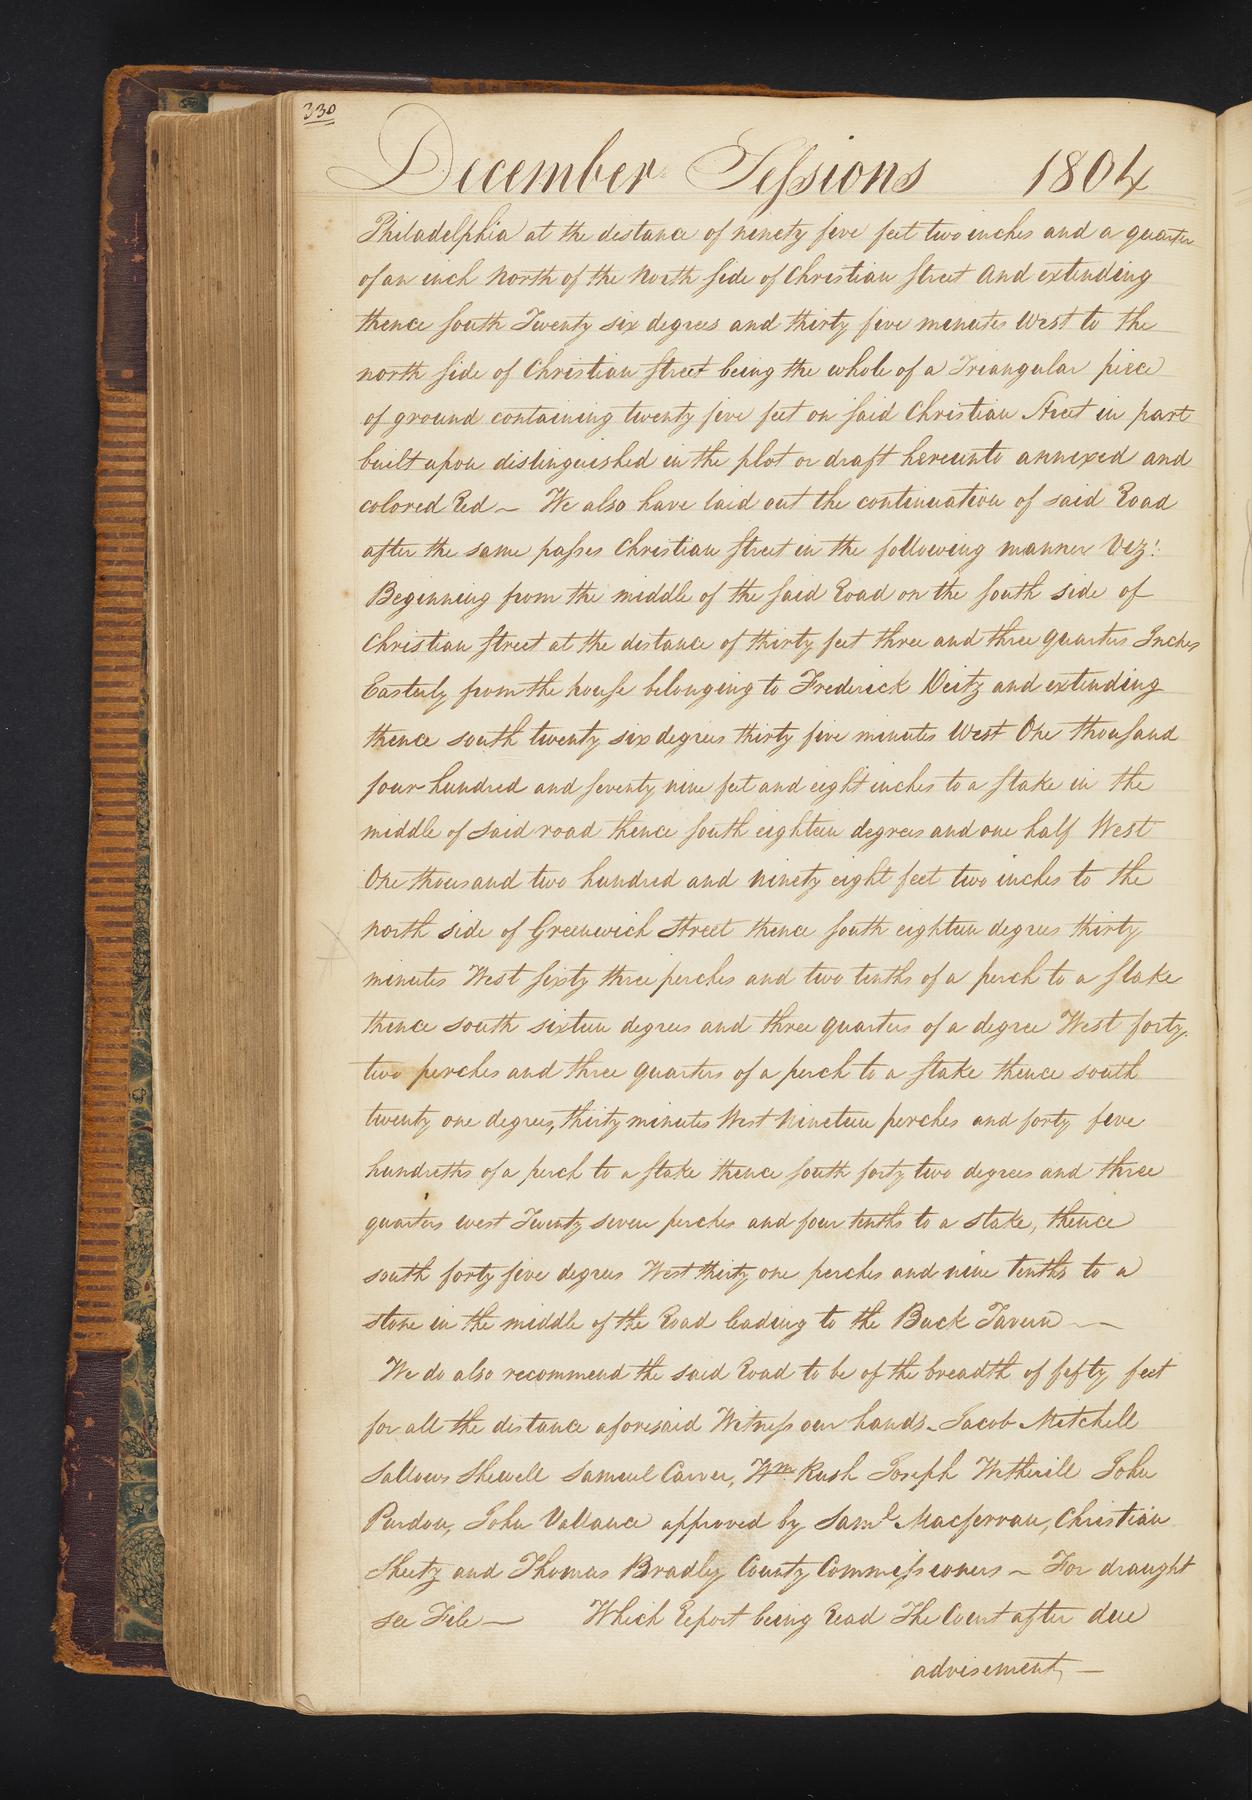 330
December Sessions 1804
Philadelphia at the distance of ninety five feet two inches and a quarter
of an inch North of the North side of Christian street And extending
thence south Twenty six degrees and thirty five minutes West to the
north side of Christian street being the whole of a Triangular piece
of ground containing twenty five feet on said Christian Street in part
built upon distinguished in the plot or draft hereunto annexed and
colored Red ~ We also have laid out the continuation of said Road
after the same passes Christian street in the following manner Viz!:
Beginning from the middle of the said Road on the south side of
Christian street at the distance of thirty feet three and three quarters Inches
Easterly from the house belonging to Frederick Weitz and extending
thence south twenty six degrees thirty five minutes West One thousand
four hundred and seventy nine feet and eight inches to a stake in the
middle of said road thence south eighteen degrees and one half West
One thousand two hundred and ninety eight feet two inches to the
north side of Greenwich Street thence south eighteen degrees thirty
minutes West sixty three perches and two tenths of a perch to a stake
thence south sixteen degrees and three quarters of a degree West forty
two perches and three quarters of a perch to a stake thence south
twenty one degrees, thirty minutes West Nineteen perches and forty five
hundreths of a perch to a stake thence south forty two degrees and three
quarters west Twenty seven perches and four tenths to a stake, thence
south forty five degrees West thirty one perches and nine tenths to a
stone in the middle of the Road leading to the Buck Tavern ~
We do also recommend the said Road to be of the breadth of fifty feet
for all the distance aforesaid Witness our hands. Jacob Mitchell
Sallows Shewell Samuel Carver, Wm. Rush Joseph Wetherill John
Purdon, John Vallance approved by Saml. Macferran, Christian
Sheetz and Thomas Bradley County Commissioners ~ For draught
see File — Which Report being Read The Court after due
advisement, —